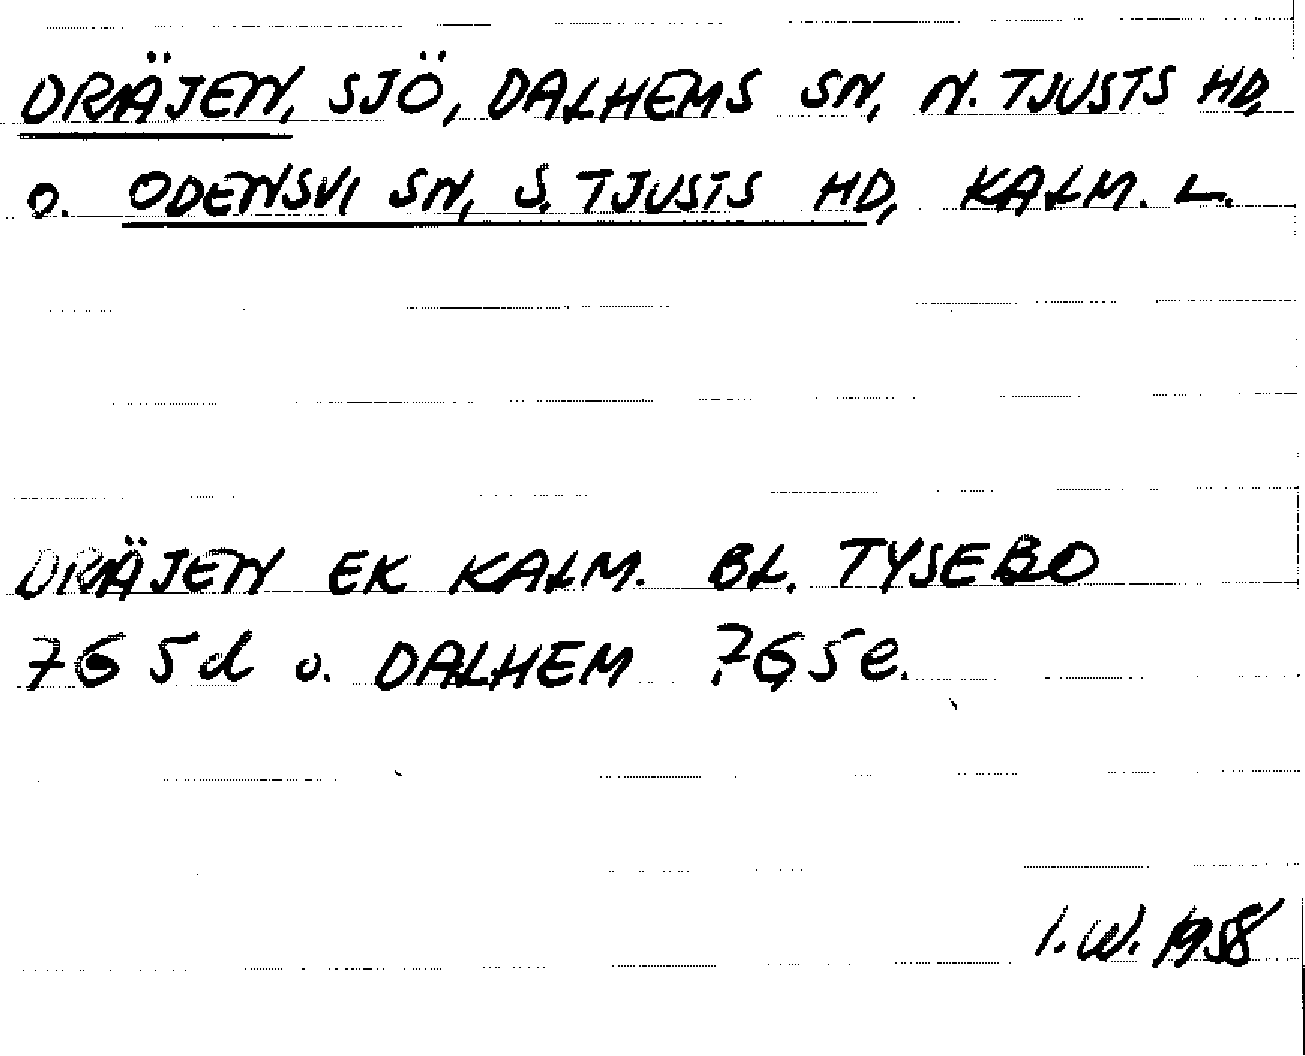 DRÄJEN, SJÖ, DALHEMS SN, N. TJUSTS HD,
o. ODENSVI SN, S. TJUSTS HD, KALM. L.
DRÄJEN EK KALM. BL. TYSEBO
7G 5d o. DALHEM 7G 5e.
I.W. 1958